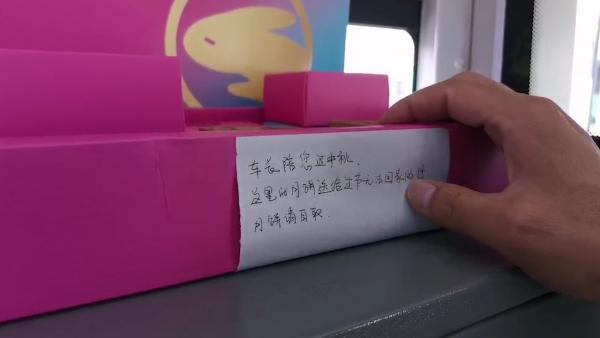 车长陪您过中秋.
这里的月饼送给过节无法回家的您
月饼请自取.